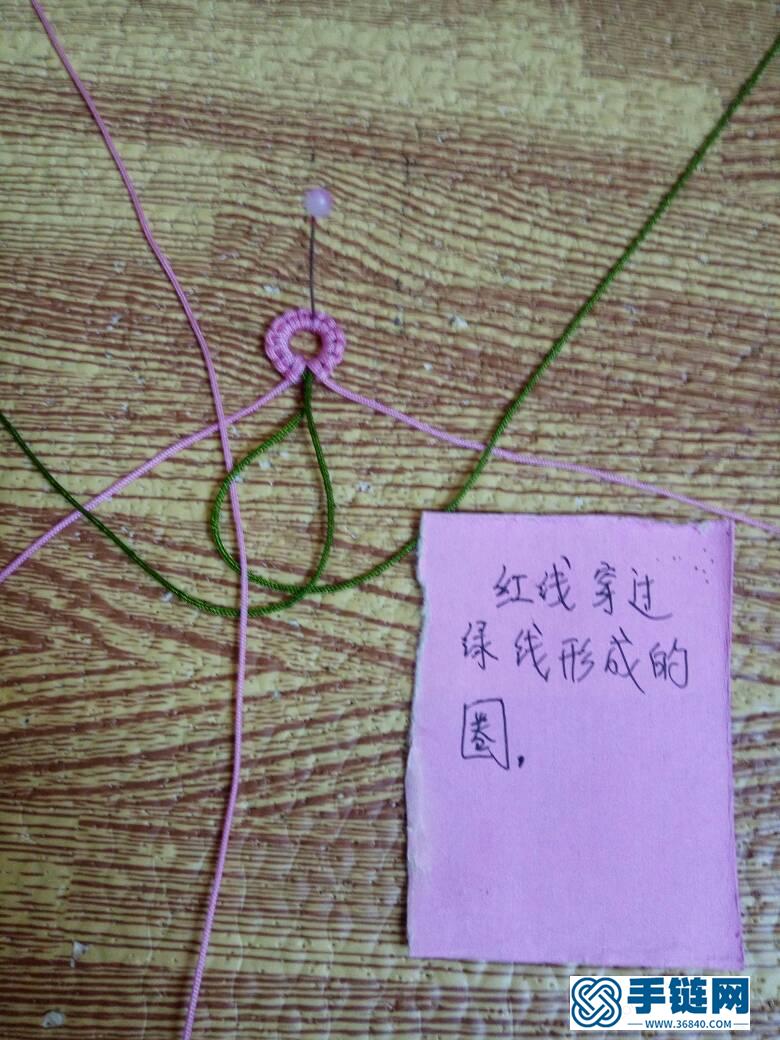 红线穿过
绿线形成的
圈,
手链网
WWW.36840.COM